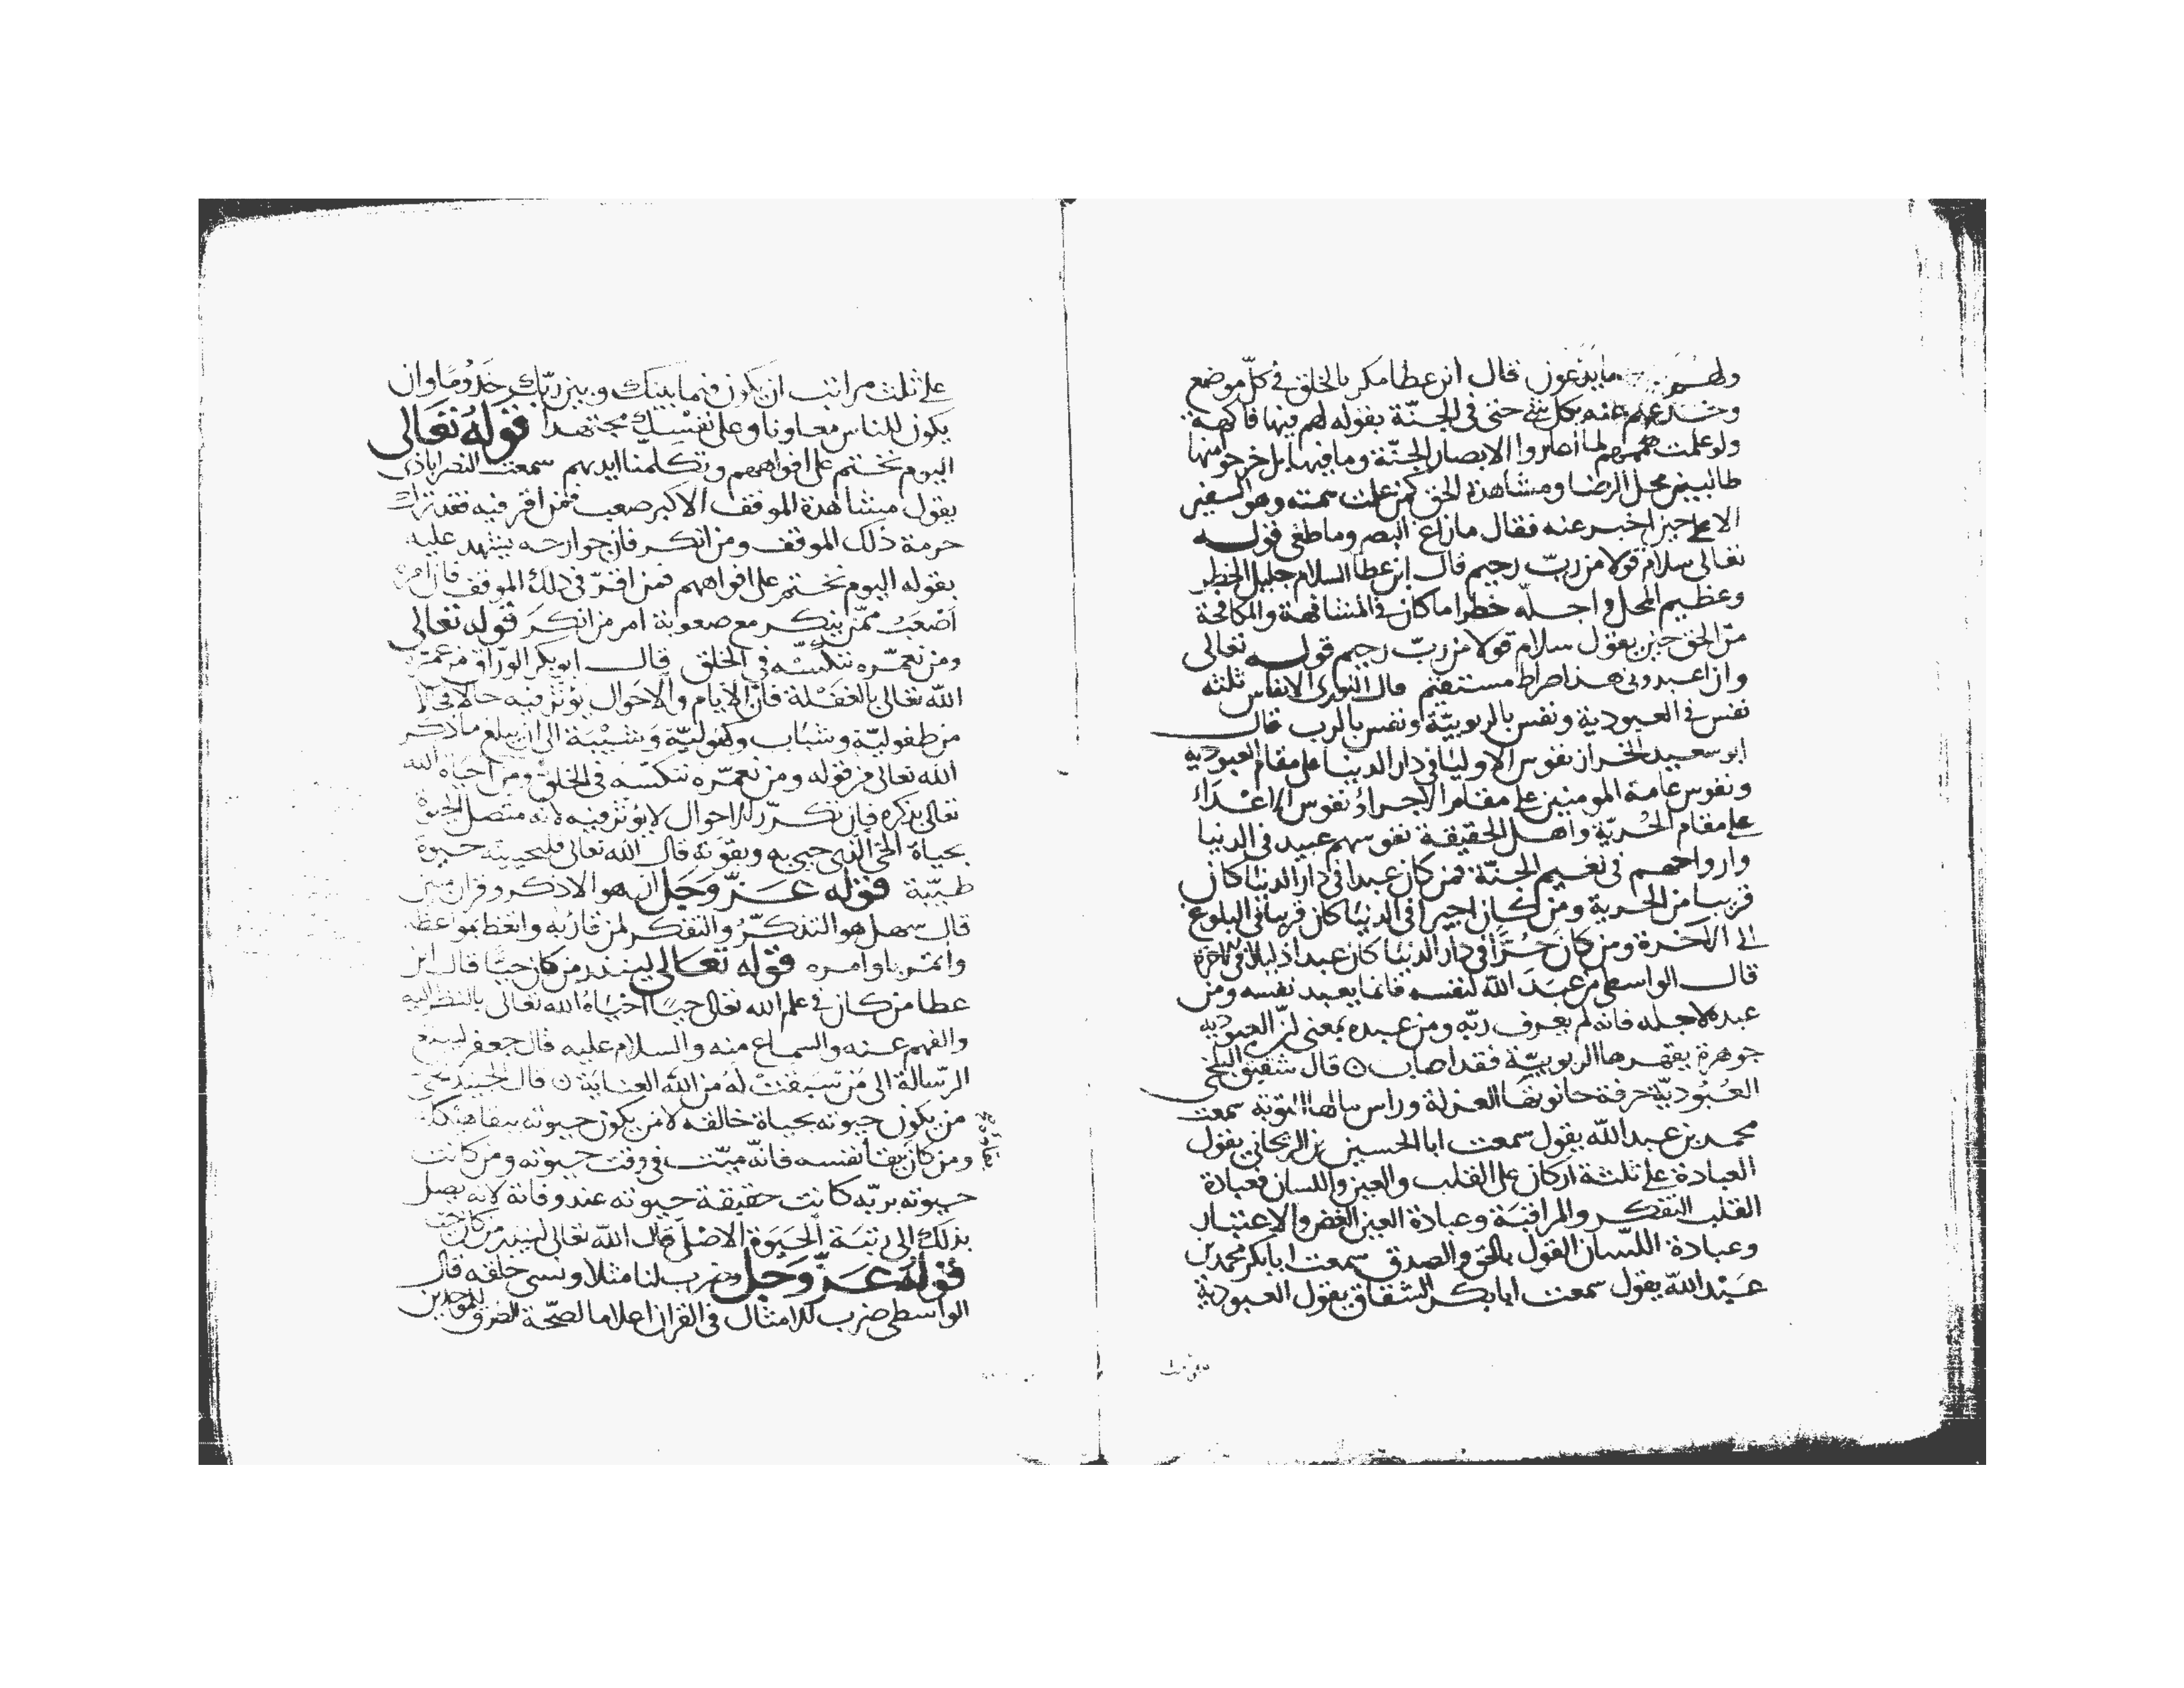 ولهم ما يدعون قال ابن عطا مكر بالخلق في كل موضع
وخدعهم عنه بكل شي حتى في الجنة بقوله لهم فيها فاكهة
ولو علت هممهم لما اعاروا الابصار الجنة وما فيها بل خرجوا منها
طالبين محل الرضا ومشاهدة الحق كمن علت همته وهو السفير
الاعلى حين اخبر عنه فقال ما زاغ البصر وما طغى قوله
تعالى سلام قولا من رب رحيم قال ابن عطا السلام جليل الخطر
وعظيم المحل واجله خطرا ما كان في المشافهة والمكافحة
من الحق حين يقول سلام قولا من رب رحيم قوله تعالى
وان اعبدوني هذا صراط مستقيم قال النوري الانفاس ثلثه
نفس في العبودية ونفس بالربوبية ونفس بالرب قال
ابو سعيد الخراز نفوس الاوليا في دار الدنيا على مقام العبودية
ونفوس عامة المومنين على مقام الاجراء ونفوس الاعداء
على مقام الحرية واهل الحقيقة نفوسهم عبيد في الدنيا
وارواحهم في نعيم الجنة فمن كان عبدا في دار الدنيا كان
قريبا من الحرية ومن كان اجيرا في الدنيا كان قريبا في البلوغ
الى الاخرة ومن كان حرا في دار الدنيا كان عبدا ذليلا في الاخرة
قال الواسطي من عبد الله لنفسه فانما يعبد نفسه ومن
عبده لاجله فانه لم يعرف ربه ومن عبده بمعنى ان العبودية
جوهرة يقهرها الربوبية فقد اصاب ن قال شقيق البلخي
العبودية حرفة حانوتها العزلة وراس مالها التوبة سمعت
محمد بن عبد الله يقول سمعت ابا الحسين بن الزنجاني يقول
العبادة على ثلثة اركان على القلب والعين واللسان فعبادة
القلب التفكر والمراقبة وعبادة العين الغض والاعتبار
وعبادة اللسان القول بالحق والصدق سمعت ابا بكر محمد بن
عبد الله يقول سمعت ابا بكر الشقاق يقول العبودية
على ثلث مراتب ان يكون فيما بينك وبين ربك خدوما وان
يكون للناس معاونا وعلى نفسك مجتهدا قوله تعالى
اليوم نختم على افواههم وتكلمنا ايديهم سمعت النصراباذى
يقول مشاهدة الموقف الاكبر صعب فمن اقر فيه فقد ترك
حرمة ذلك الموقف ومن انكر فان جوارحه يشهد عليه
بقوله اليوم نختم على افواههم فمن اقر في ذلك الموقف فان امره
اصعب ممن ينكر مع صعوبة امر من انكر قوله تعالى
ومن نعمره ننكسه في الخلق قال ابو بكر الوراق من عمره
الله تعالى بالغفلة فان الايام والاحوال يؤثر فيه حالا
من طفولية وشباب وكهولية وشيبة الى ان يبلغ ما ذكر
الله تعالى من قوله ومن نعمره ننكسه في الخلق ومن احياه الله
تعالى بذكره فان تكرر الاحوال لا يؤثر فيه لانه متصل الحيوة
بحياة الحق الذي حيي به وبقوته قال الله تعالى فلنحيينه حيوة
طيبة قوله عز وجل ان هو الا ذكر وقران مبين
قال سهل هو التذكر والتفكر لمن قاربه واتعظ بمواعظه
وائتمر باوامره قوله تعالى لينذر من كان حيا قال ابن
عطا من كان في علم الله تعالى حيا احياه الله تعالى بالنظر اليه
والفهم عنه والسماع منه والسلام عليه قال جعفر لينذر
الرسالة الى من سبقت له من الله العناية ن قال الجنيد الحي
من يكون حيوته بحياة خالقه لا من يكون حيوته ببقا هيكله
ومن كان ببقا نفسه فانه ميت في وقت حيوته ومن كانت
حيوته بربه كانت حقيقة حيوته عند وفاته لانه يصل
بذلك الى رتبة الحيوة الاصلي قال الله تعالى لينذر من كان حيا
قوله عز وجل وضرب لنا مثلا ونسي خلقه قال
الواسطي ضرب الامثال في القران اعلاما لصحة الطرق للموحدين